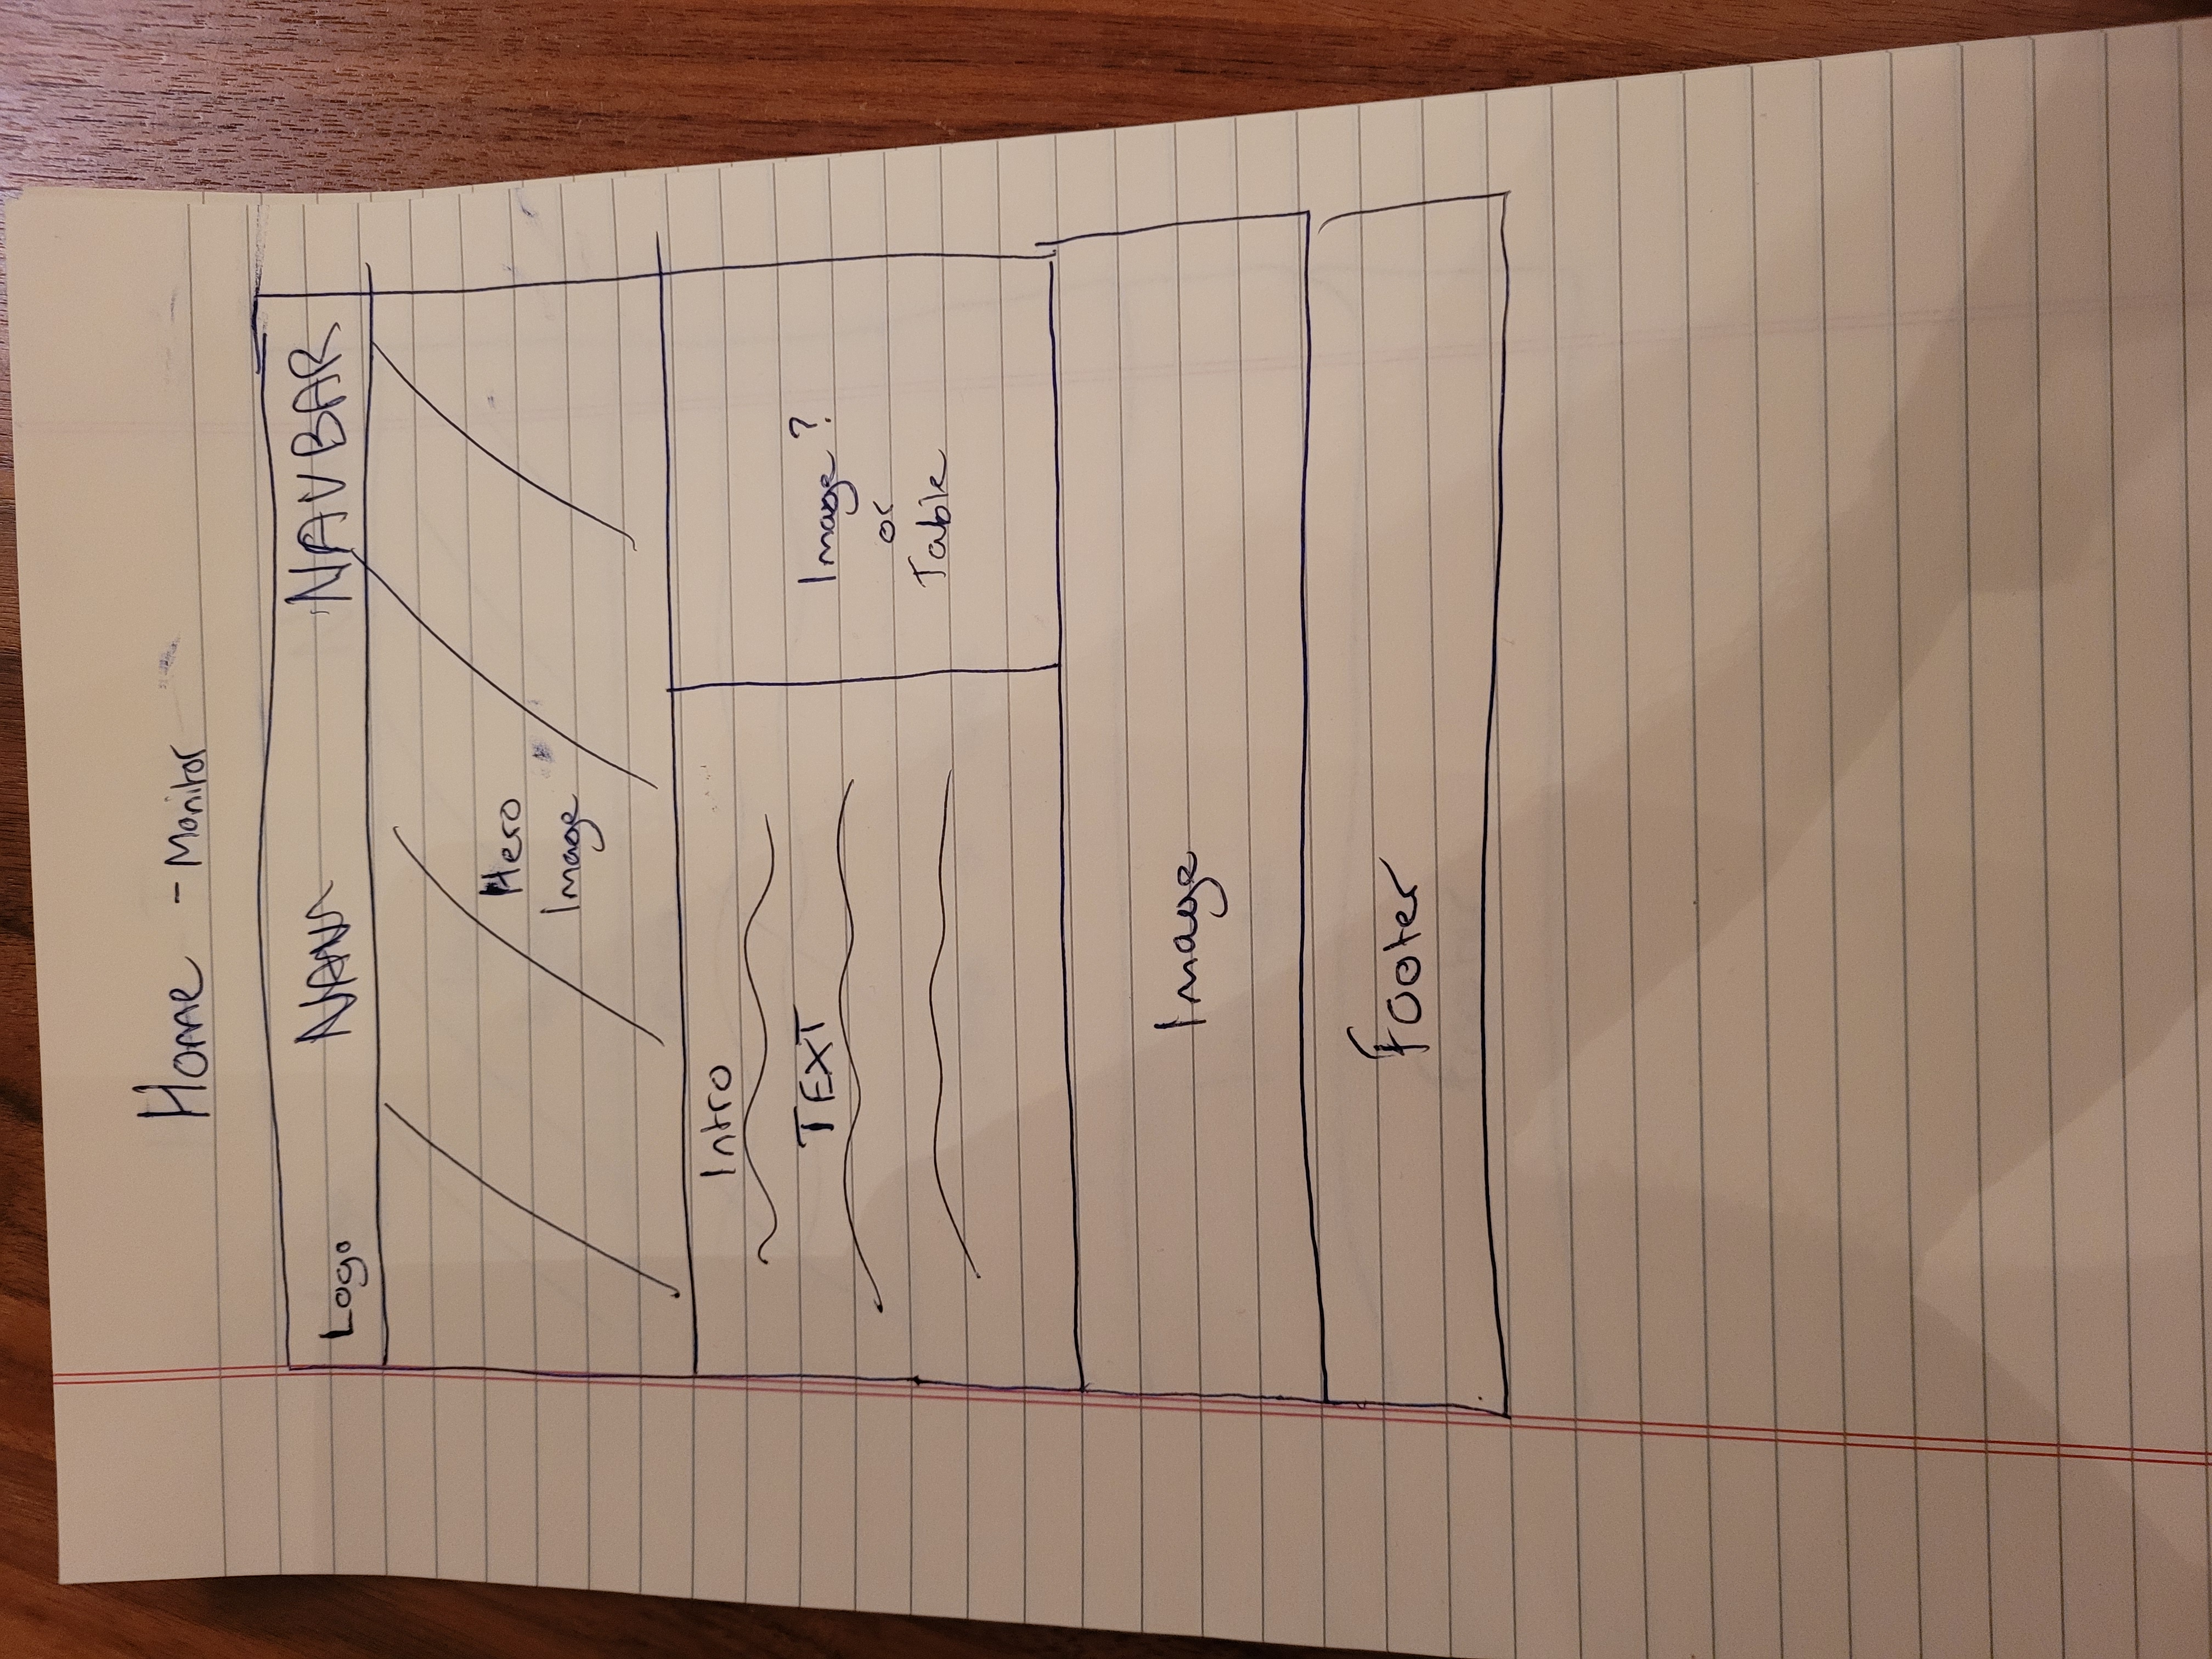 Home - Monitor
Logo NAVBAR
Hero
Image
Intro
TEXT
Image ?
or
Table
Image
Footer